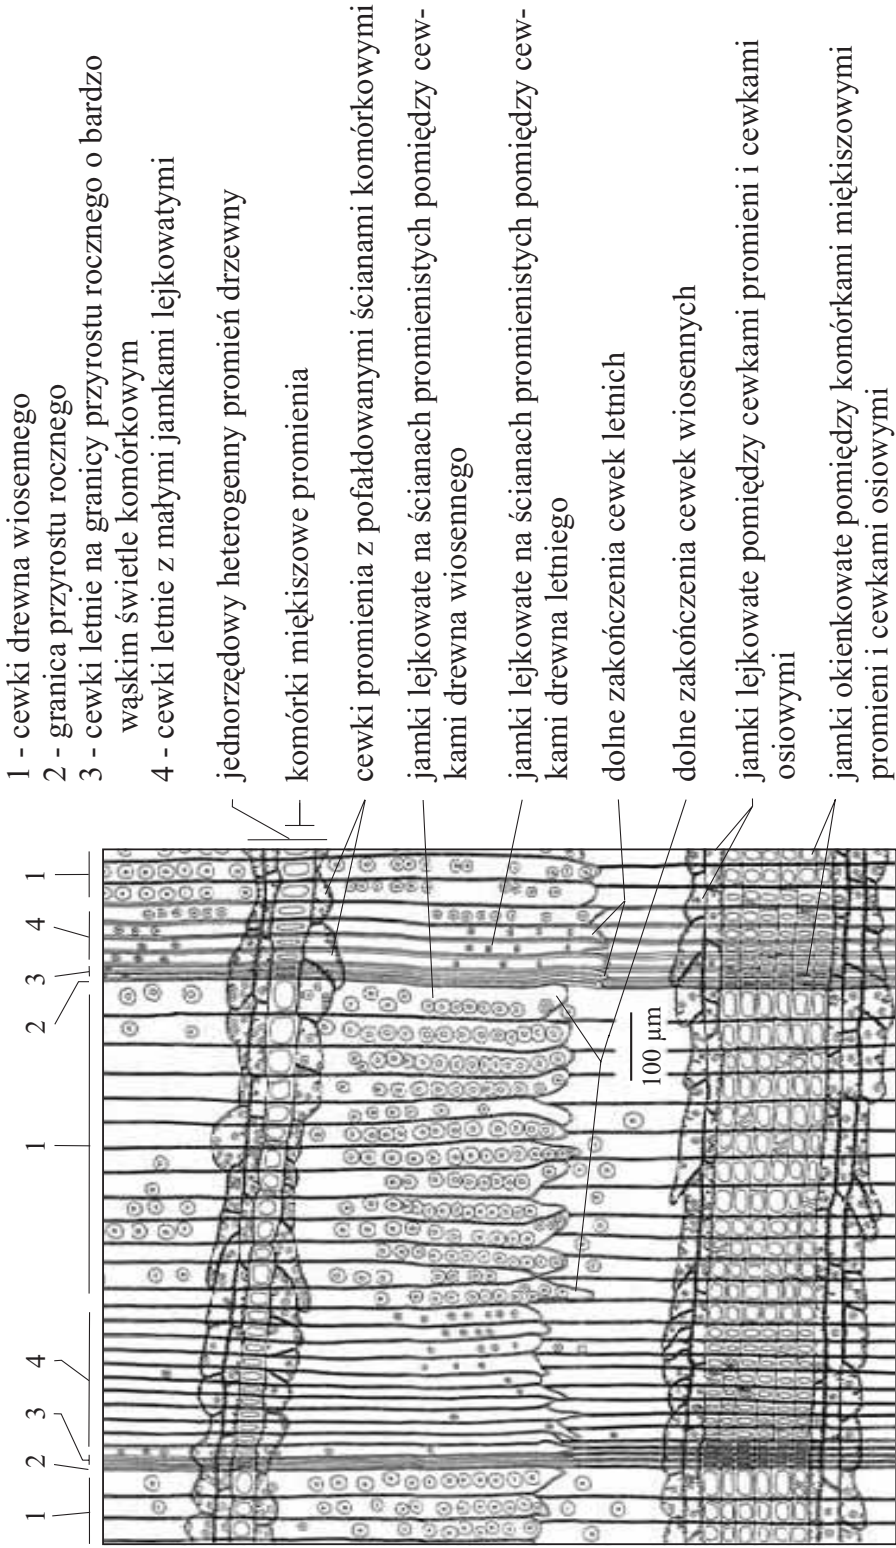 1 - cewki drewna wiosennego
2 - granica przyrostu rocznego
3 - cewki letnie na granicy przyrostu rocznego o bardzo
wąskim świetle komórkowym
4 - cewki letnie z małymi jamkami lejkowatymi
jednorzędowy heterogenny promień drzewny
komórki miękiszowe promienia
cewki promienia z pofałdowanymi ścianami komórkowymi
jamki lejkowate na ścianach promienistych pomiędzy cew-
kami drewna wiosennego
jamki lejkowate na ścianach promienistych pomiędzy cew-
kami drewna letniego
dolne zakończenia cewek letnich
dolne zakończenia cewek wiosennych
jamki lejkowate pomiędzy cewkami promieni i cewkami
osiowymi
jamki okienkowate pomiędzy komórkami miękiszowymi
promieni i cewkami osiowymi
1 2 3 4 1 2 3 4 1
100 µm